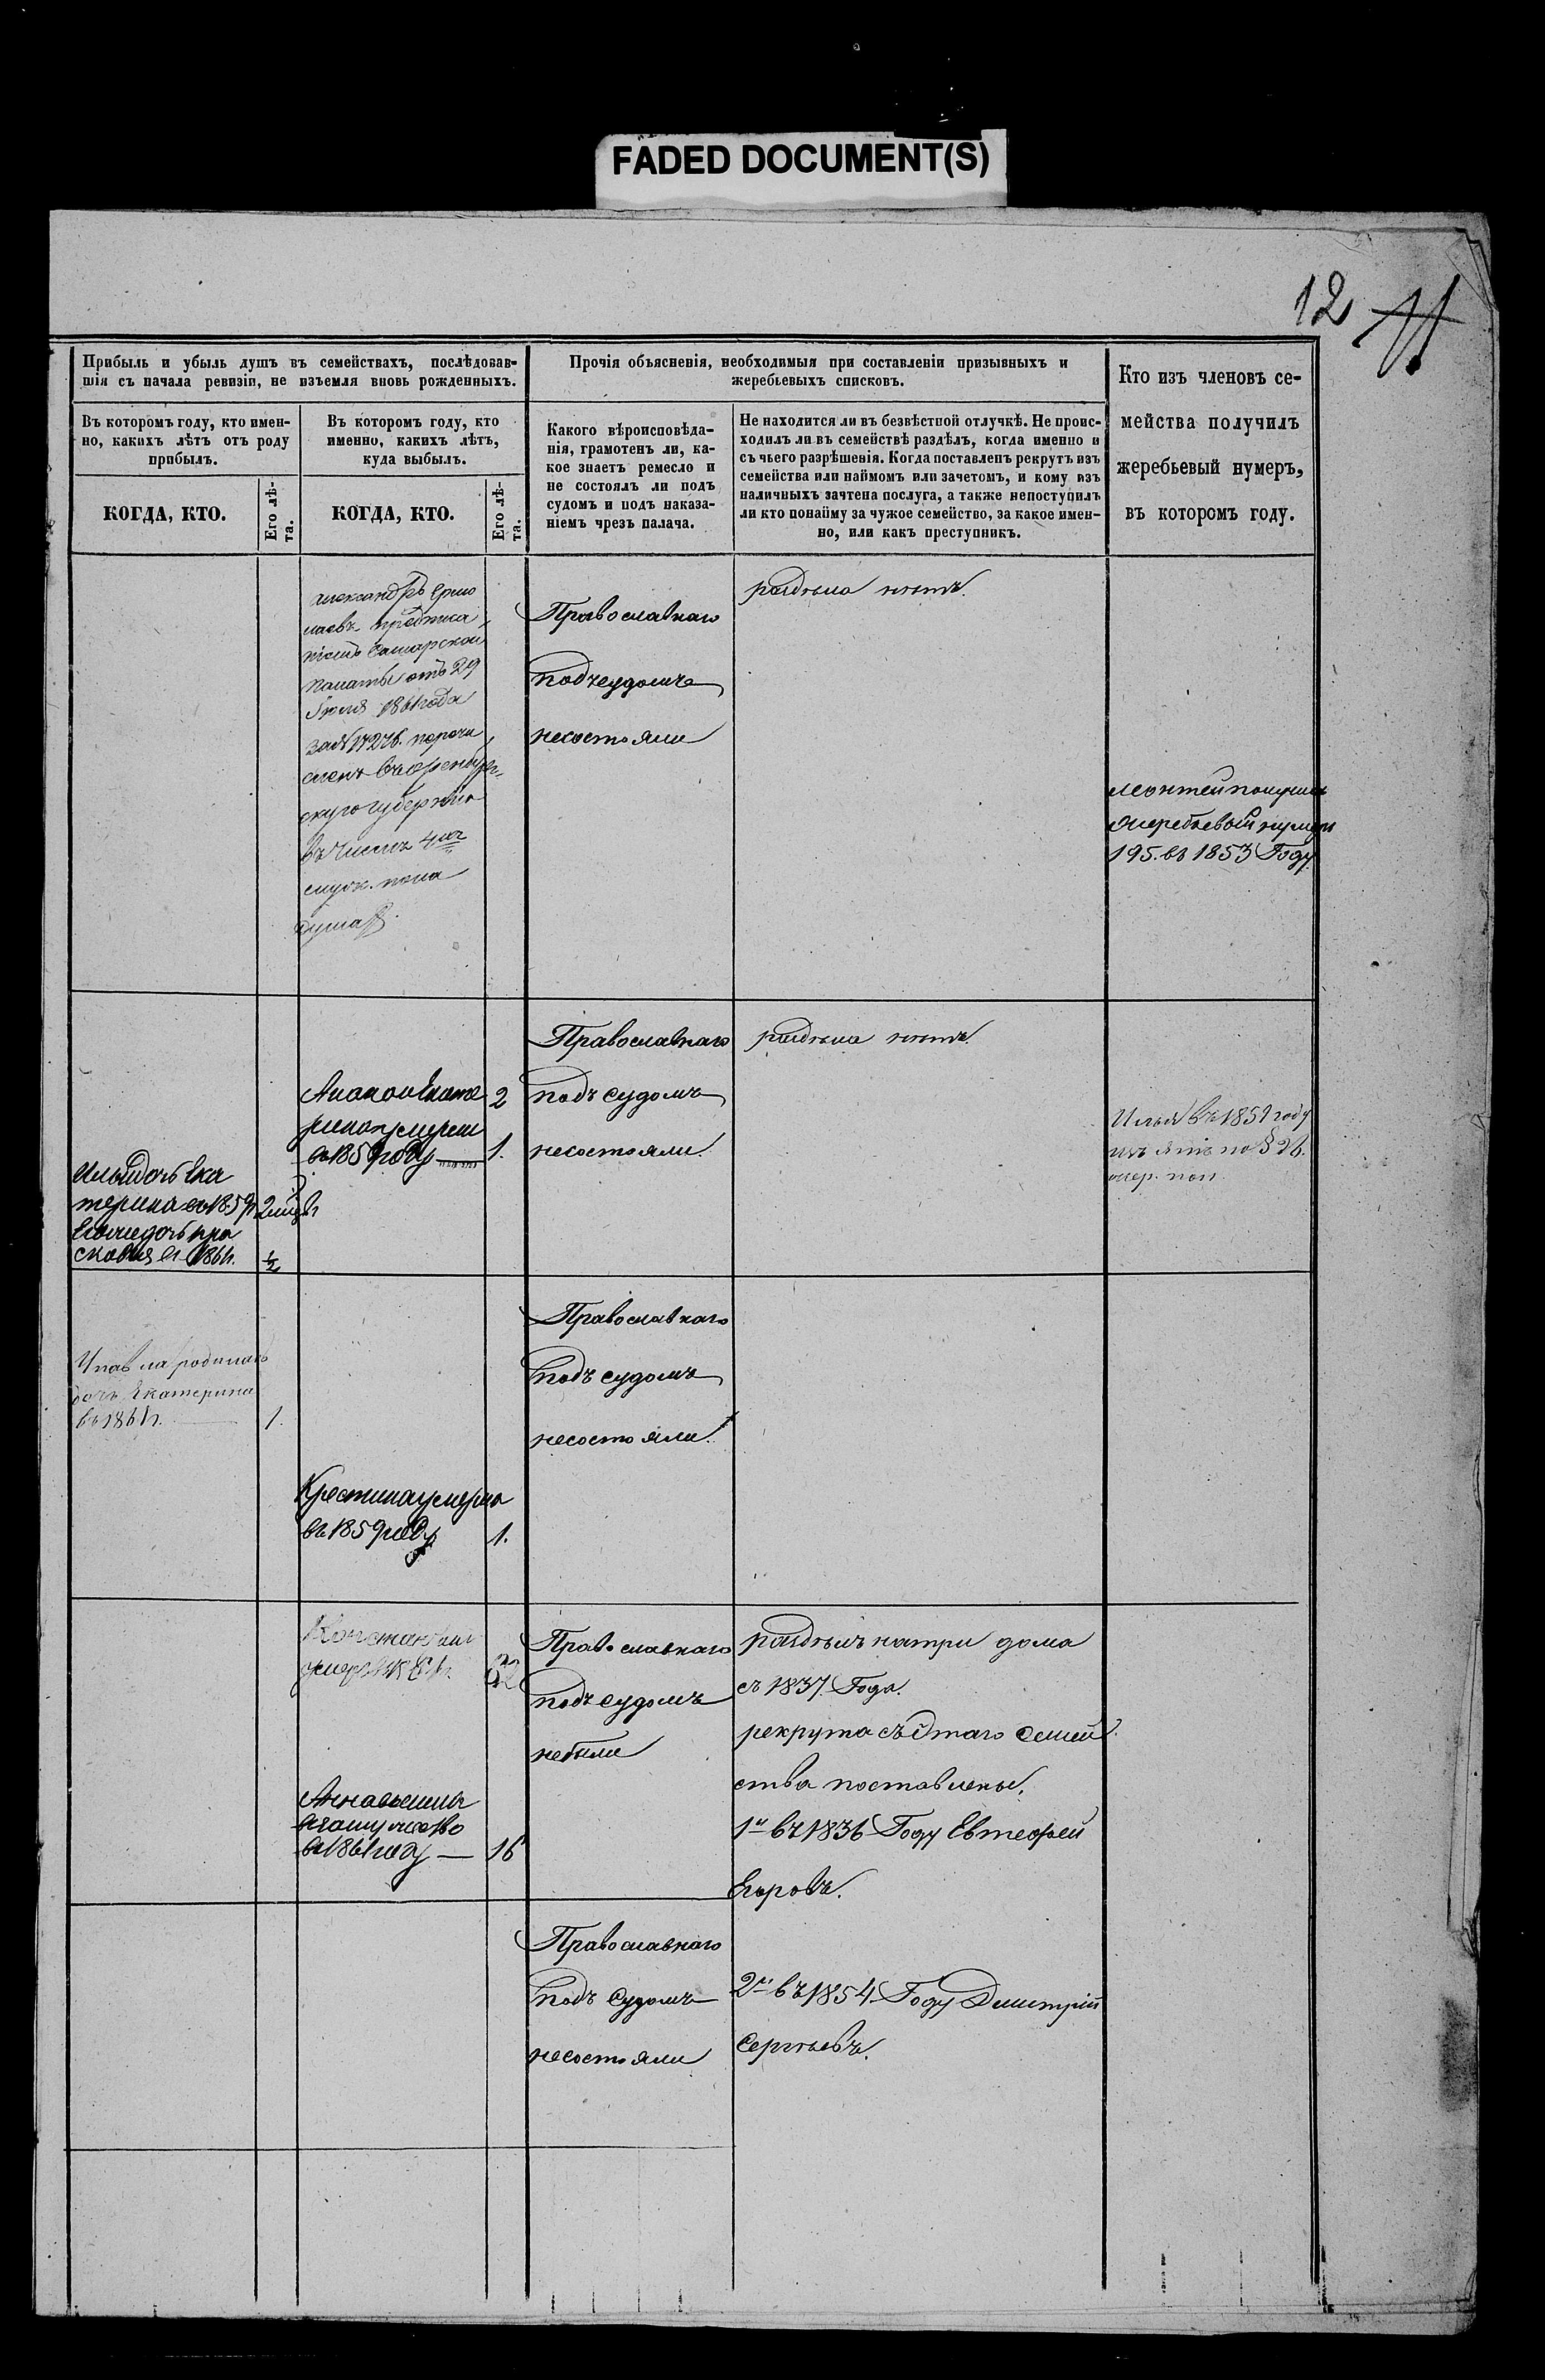 FADED DOCUMENT(S)
12
11
Прибыль и убыль душъ въ семействахъ, послѣдовав-
шія съ начала ревизіи, не изъемля вновь рожденныхъ.
Прочія объясненія, необходимыя при составленіи призывныхъ и
жеребьевыхъ списковъ.
Кто изъ членовъ се-
мейства получилъ
жеребьевый нумеръ,
въ которомъ году.
Въ которомъ году, кто имен-
но, какихъ лѣтъ отъ роду
прибылъ.
Въ которомъ году, кто
именно, какихъ лѣтъ,
куда выбылъ.
Какого вѣроисповѣда-
нія, грамотенъ ли, ка-
кое знаетъ ремесло и
не состоялъ ли подъ
судомъ и подъ наказа-
ніемъ чрезъ палача.
Не находится ли въ безвѣстной отлучкѣ. Не проис-
ходилъ ли въ семействѣ раздѣлъ, когда именно и
съ чьего разрѣшенія. Когда поставленъ рекрутъ изъ
семейства или наймомъ или зачетомъ, и кому изъ
наличныхъ зачтена послуга, а также непоступилъ
ли кто понайму за чужое семейство, за какое имен-
но, или какъ преступникъ.
КОГДА, КТО.
Его лѣ-
та.
КОГДА, КТО.
Его лѣ-
та.
Александръ Ермо
лаевъ предписа
ніемъ Самарской
Палаты отъ 29
Іюля 1861 года
за № 17276. перечи
сленъ въ Оренбург-
скую губернію
въ числѣ 4хъ
душахъ.
Православнаго
подъ судомъ
несостояли
раздѣла нѣтъ.
Леонтей получилъ
жеребьевый нумеръ
195. въ 1853 Году
Ильи дочь Ека
терина въ 1859
2
скавья въ 1861 г. ½
въ 1859 году 1.
2
Православнаго
подъ судомъ
несостояли.
раздѣла нѣтъ.
Илья въ 1859 году
по § 26.
У павла родилась
дочь Екатерина
въ 1861 г. 1.
Крестина умерла
въ 1859 году 1.
Православнаго
подъ судомъ
несостояли.
Константин
умеръ въ 1861 г.
Анна вышла
въ замужство
въ 1861 году 16
Православнаго
подъ судомъ
небыли
раздѣлъ натри дома
съ 1837. Года.
рекрута съ этаго Семей
ства поставлены.
1й въ 1836 Году Евтефей
Егоровъ.
Православнаго
подъ Судомъ
несостояли
2й въ 1854 Году Димитрій
Сергѣевъ.